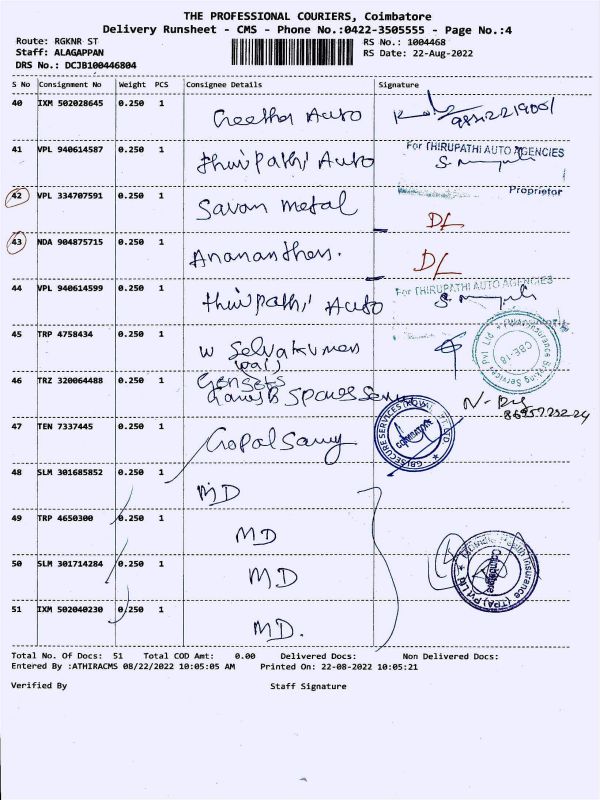 THE PROFESSIONAL COURIERS, Coimbatore
Delivery Runsheet - CMS - Phone No.:0422-3505555 - Page No.:4
Route: RGKNR ST RS No.: 1004468
Staff: ALAGAPPAN RS Date: 22-Aug-2022
DRS No.: DCJB100446804
S No Consignment No Weight PCS Consignee Details Signature
40 IXM 502028645 0.250 1 Geetha Auto
41 VPL 940614587 0.250 1 thirupathi Auto For THIRUPATHI AUTO AGENCIES
Proprietor
42 VPL 334707591 0.250 1 Savan metal DL
43 NDA 904875715 0.250 1 DL
44 VPL 940614599 0.250 1 thirupathi Auto For THIRUPATHI AUTO AGENCIES
45 TRP 4758434 0.250 1 Selvakumar
46 TRZ 320064488 0.250 1 Gensets
47 TEN 7337445 0.250 1 Gopalsamy
COIMBATORE
48 SLM 301685852 0.250 1 MD
49 TRP 4650300 0.250 1 MD
50 SLM 301714284 0.250 1 MD
Health Insurance (TPA) Pvt Ltd
Coimbatore
51 IXM 502040230 0.250 1 MD.
Total No. Of Docs: 51 Total COD Amt: 0.00 Delivered Docs: Non Delivered Docs:
Entered By :ATHIRACMS 08/22/2022 10:05:05 AM Printed On: 22-08-2022 10:05:21
Verified By Staff Signature